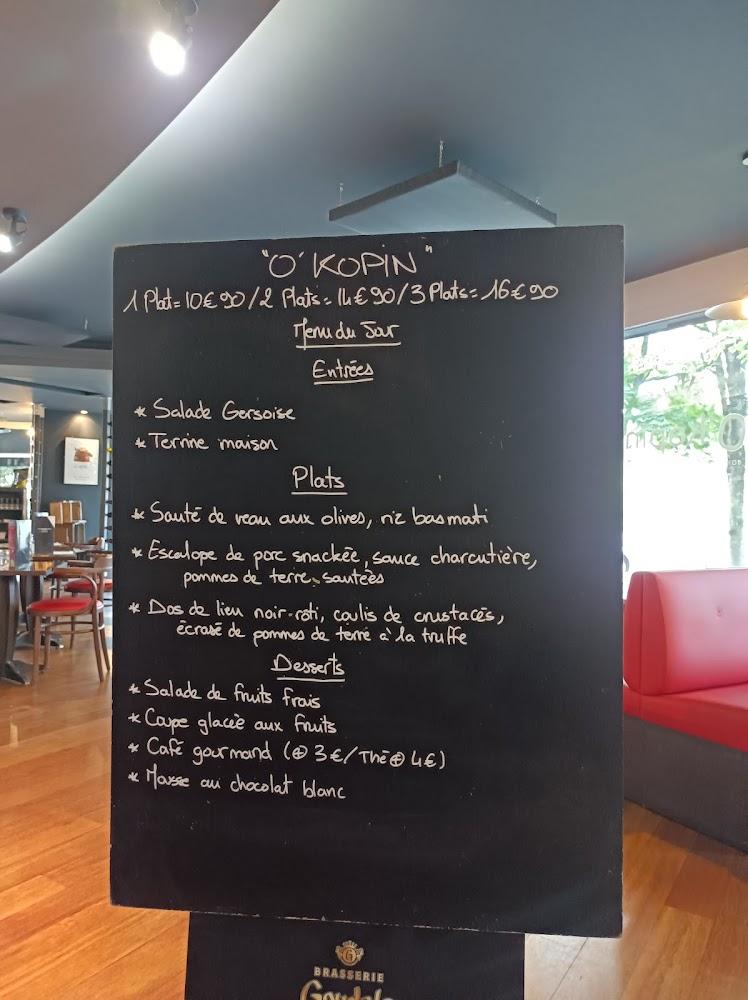 "O'KOPIN"
1 Plat = 10€90 / 2 Plats = 14€90 / 3 Plats = 16€90
Menu du Jour
Entrées
* Salade Gersoise
* Terrine maison
Plats
* Sauté de veau aux olives, riz basmati
* Escalope de porc snackée, sauce charcutière,
pommes de terre sautées
* Dos de lieu noir rôti, coulis de crustacés,
écrasé de pommes de terre à la truffe
Desserts
* Salade de fruits frais
* Coupe glacée aux fruits
* Café gourmand (⊕ 3€ / Thé ⊕ 4€)
* Mousse au chocolat blanc
G
BRASSERIE